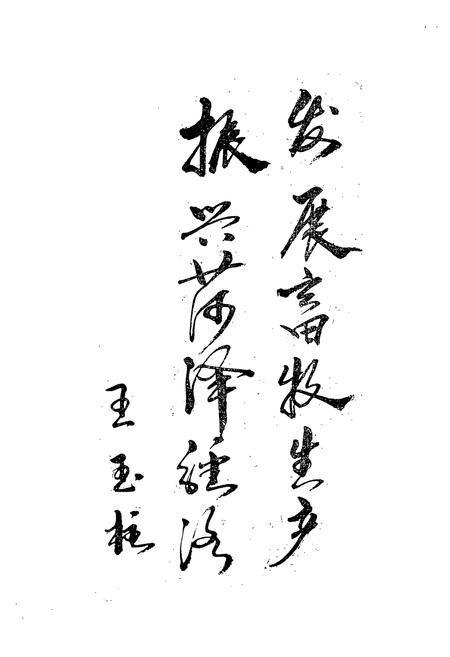 发展畜牧生产
振兴菏泽经济
王玉柱